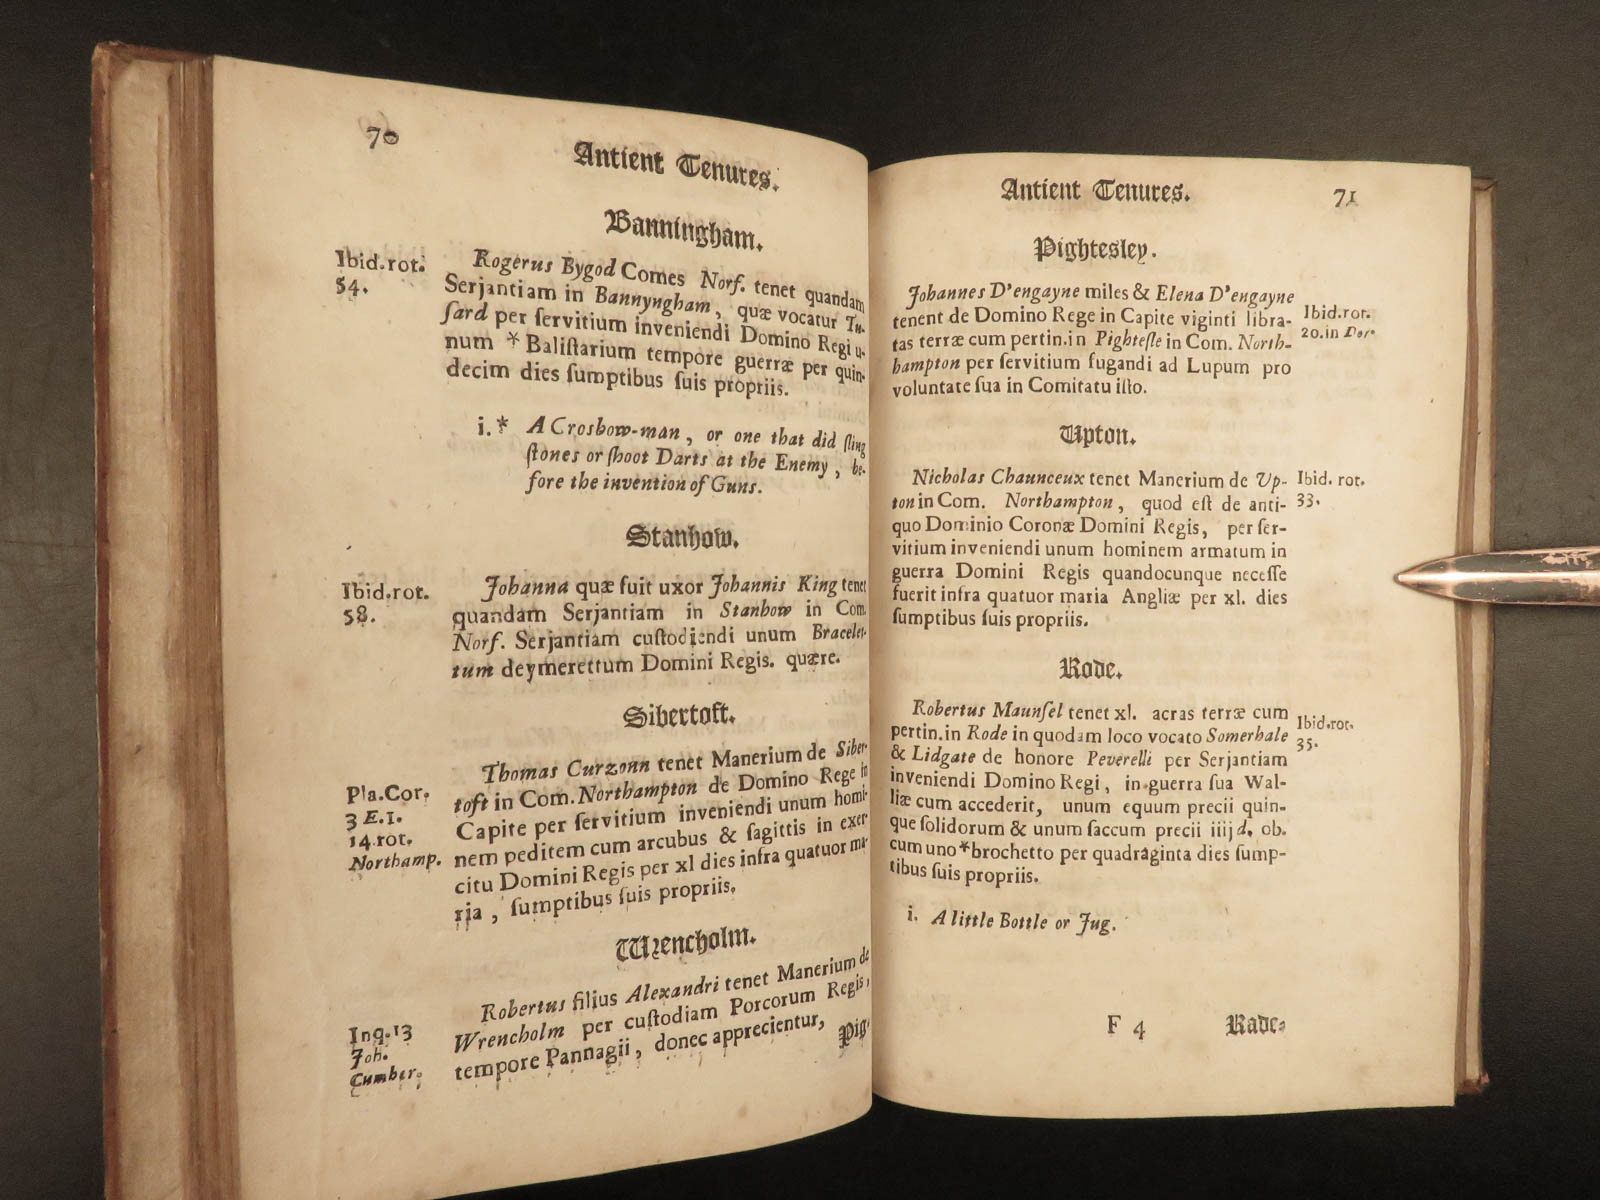 70
Antient Tenures.
Banningham.
Ibid.rot.
54.
Rogerus Bygod Comes Norf. tenet quandam
Serjantiam in Bannyngham, quæ vocatur Tu-
ſard per ſervitium inveniendi Domino Regi u-
num * Baliſtarium tempore guerræ per quin-
decim dies ſumptibus ſuis propriis.
i.* A Crosbow-man, or one that did ſling
ſtones or ſhoot Darts at the Enemy, be-
fore the invention of Guns.
Stanhow.
Ibid.rot.
58.
Johanna quæ fuit uxor Johannis King tenet
quandam Serjantiam in Stanhow in Com.
Norf. Serjantiam cuſtodiendi unum Bracelet-
tum deymerettum Domini Regis. quære.
Sibertoft.
Pla.Cor.
3 E.1.
14.rot.
Northamp.
Thomas Curzonn tenet Manerium de Siber-
toft in Com. Northampton de Domino Rege in
Capite per ſervitium inveniendi unum homi-
nem peditem cum arcubus & ſagittis in exer-
citu Domini Regis per xl dies infra quatuor ma-
ria, ſumptibus ſuis propriis.
Wrencholm.
Inq.13
Joh.
Cumber.
Robertus filius Alexandri tenet Manerium de
Wrencholm per cuſtodiam Porcorum Regis,
tempore Pannagii, donec apprecientur,
Pig-
Antient Tenures.
71
Pightesley.
Johannes D'engayne miles & Elena D'engayne
tenent de Domino Rege in Capite viginti libra-
tas terræ cum pertin.in Pighteſle in Com. North-
hampton per ſervitium fugandi ad Lupum pro
voluntate ſua in Comitatu iſto.
Ibid.rot.
20.in Dor.
Upton.
Nicholas Chaunceux tenet Manerium de Up-
ton in Com. Northampton, quod eſt de anti-
quo Dominio Coronæ Domini Regis, per ſer-
vitium inveniendi unum hominem armatum in
guerra Domini Regis quandocunque neceſſe
fuerit infra quatuor maria Angliæ per xl. dies
ſumptibus ſuis propriis.
Ibid. rot.
33.
Rode.
Robertus Maunſel tenet xl. acras terræ cum
pertin.in Rode in quodam loco vocato Somerhale
& Lidgate de honore Peverelli per Serjantiam
inveniendi Domino Regi, in guerra ſua Wal-
liæ cum accederit, unum equum precii quin-
que ſolidorum & unum ſaccum precii iiij d. ob.
cum uno *brochetto per quadraginta dies ſump-
tibus ſuis propriis.
Ibid.rot.
35.
i. A little Bottle or Jug.
F 4
Rade-